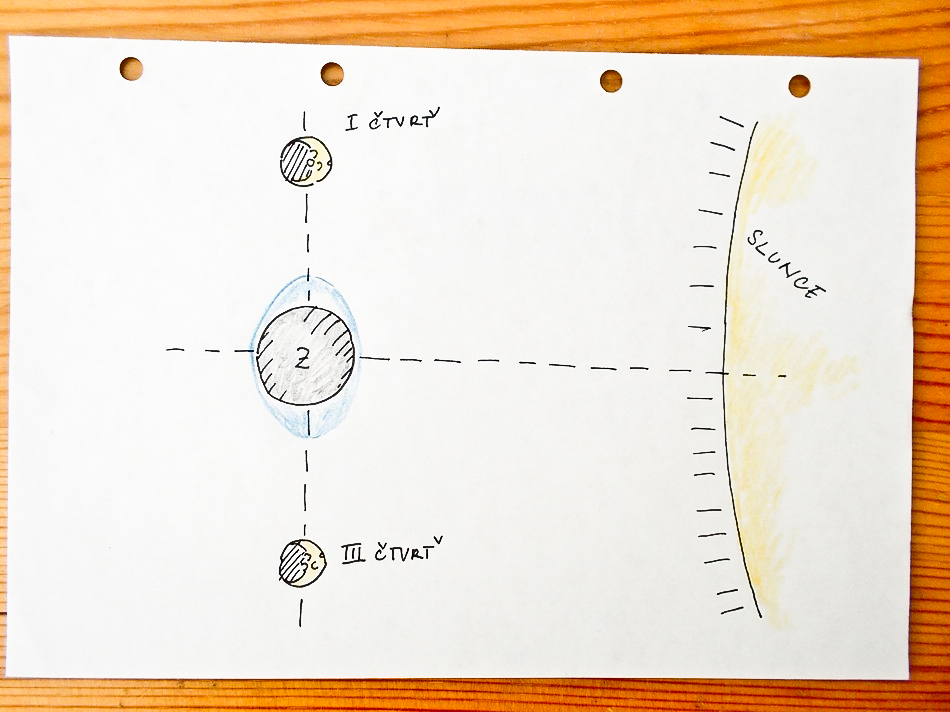 I ČTVRŤ
SLUNCE
Z
III ČTVRŤ